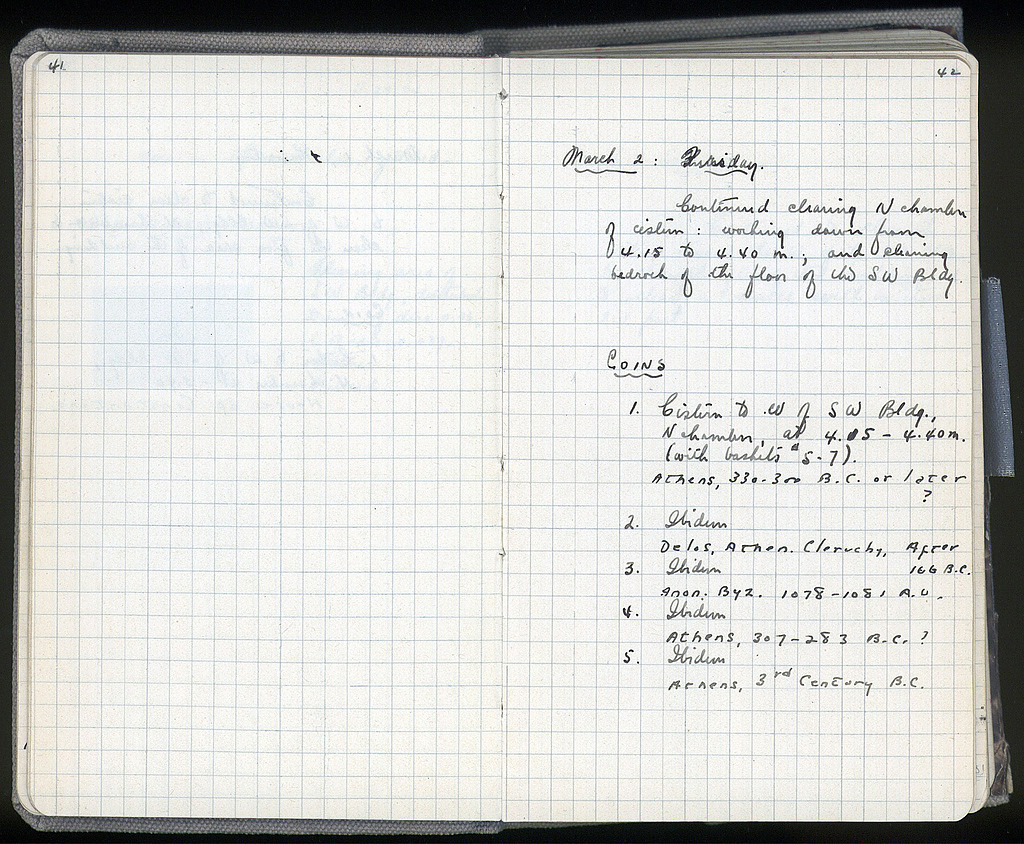 41
42
March 2 : Tuesday.
Continued cleaning N chamber
of cistern : working down from
4.15 to 4.40 m.; and cleaning
bedrock of the floor of the SW Bldg.
COINS
1. Cistern to W of SW Bldg.,
N chamber, at 4.15 - 4.40m.
(with baskets # 5-7).
Athens, 330-300 B.C. or later
?
2. Ibidem
Delos, Athen. Cleruchy, After
166 B.C.
3. Ibidem
Anon. Byz. 1078-1081 A.D.
4. Ibidem
Athens, 307-283 B.C. ?
5. Ibidem
Athens, 3rd Century B.C.